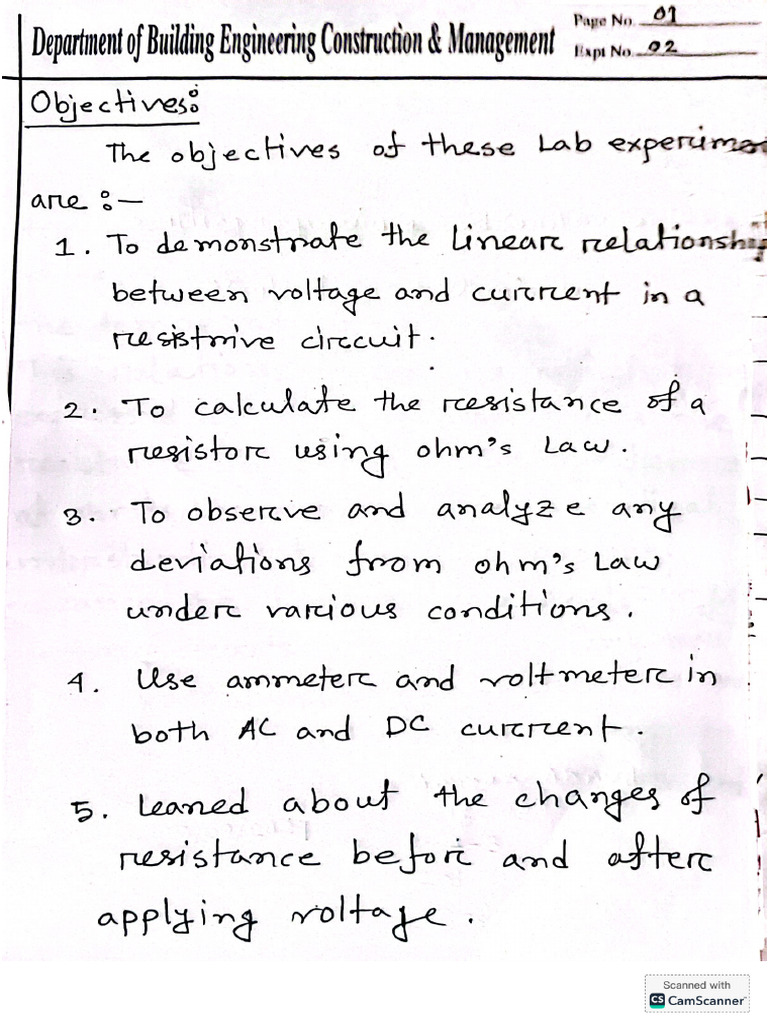 Page No. 01
Department of Building Engineering Construction & Management
Expt No. 02
Objectives:
The objectives of these Lab experimen
are :-
1. To demonstrate the linear relationship
between voltage and current in a
resistive circuit.
2. To calculate the resistance of a
resistor using ohm's Law.
3. To observe and analyze any
deviations from ohm's Law
under various conditions.
4. Use ammeter and voltmeter in
both AC and DC current.
5. Leaned about the changes of
resistance befor and after
applying voltage.
Scanned with
CS CamScanner